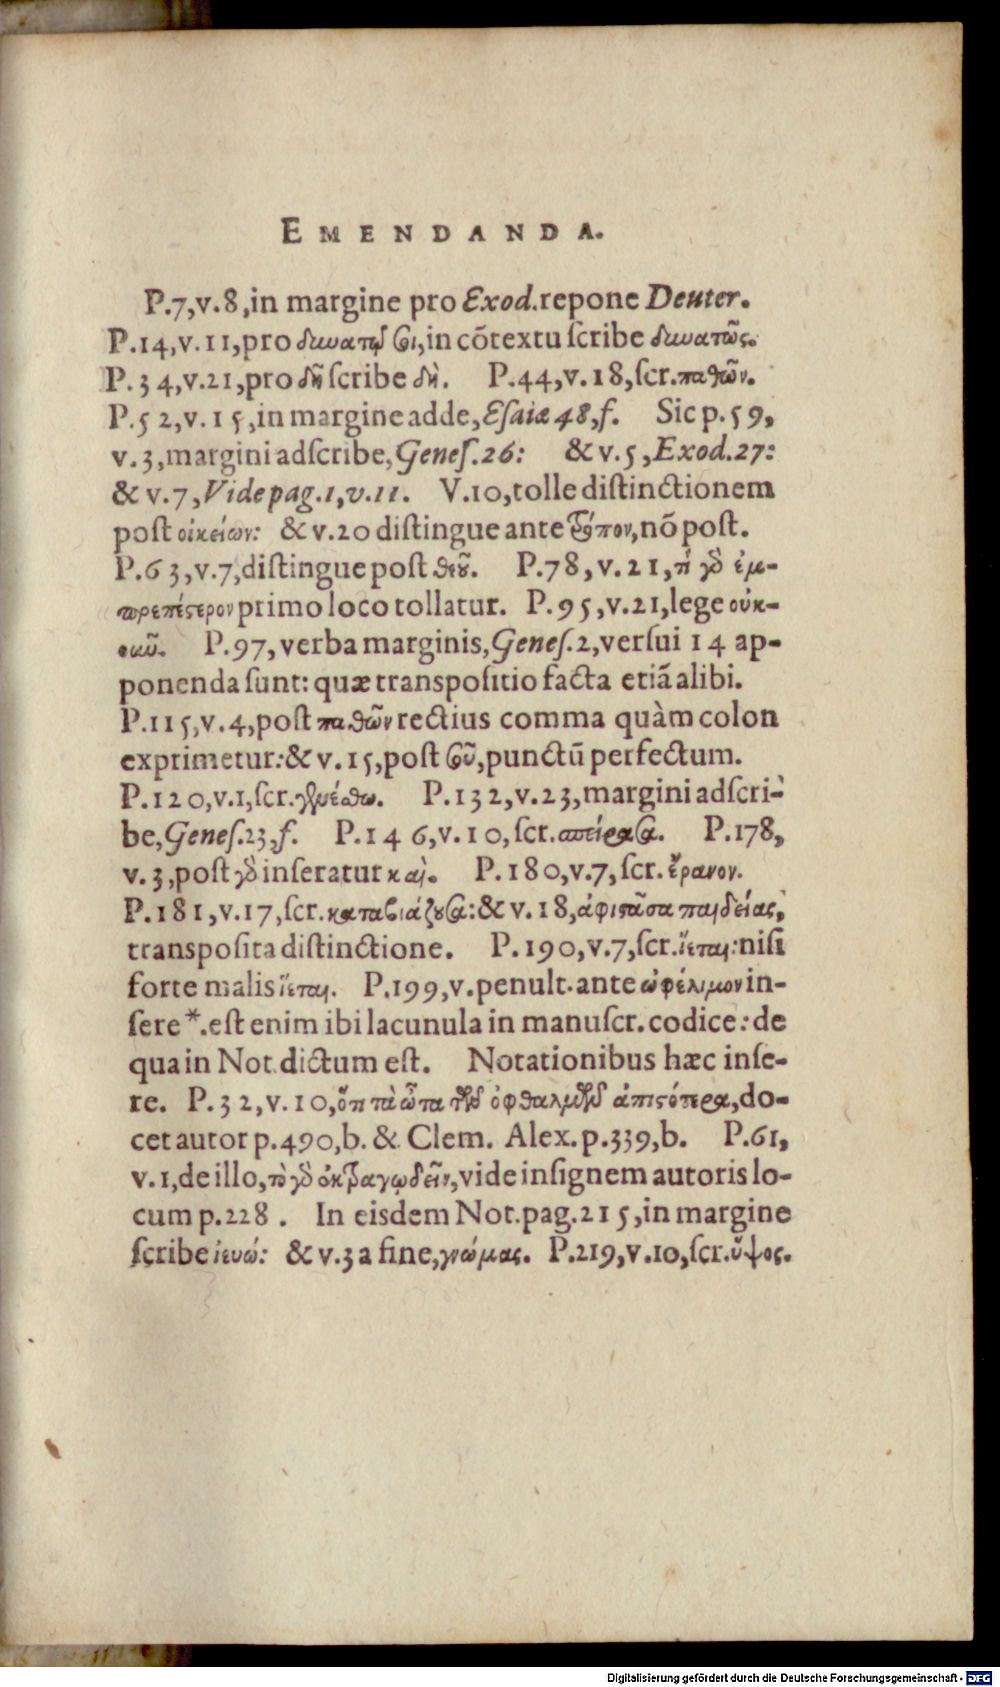 EMENDANDA.
P.7,v.8,in margine pro Exod.repone Deuter.
P.14,v.11,pro δυνατῷ σοι,in cõtextu ſcribe δυνατῶς.
P.34,v.21,pro δῆ ſcribe δὴ. P.44,v.18,ſcr.παθῶν.
P.52,v.15,in margine adde,Eſaiæ 48,f. Sic p.59,
v.3,margini adſcribe,Geneſ.26: & v.5,Exod.27:
& v.7,Vide pag.1,v.11. V.10,tolle diſtinctionem
poſt οἰκείων: & v.20 diſtingue ante τρόπον,nõ poſt.
P.63,v.7,diſtingue poſt θεοῦ. P.78,v.21,τὸ γὸ ἐμ-
πρεπέστερον primo loco tollatur. P.95,v.21,lege οὐκ-
οῦν. P.97,verba marginis,Geneſ.2,verſui 14 ap-
ponenda ſunt: quæ transpoſitio facta etiã alibi.
P.115,v.4,poſt παθῶν rectius comma quàm colon
exprimetur:& v.15,poſt σοῦ,punctũ perfectum.
P.120,v.1,ſcr.γενέσθω. P.132,v.23,margini adſcri-
be,Geneſ.23,f. P.146,v.10,ſcr. P.178,
v.3,poſt γὸ inſeratur καὶ. P.180,v.7,ſcr.ἔρανον.
P.181,v.17,ſcr.καταβιάζουσα:& v.18,ἀφιστᾶσα παιδείας,
transpoſita diſtinctione. P.190,v.7,ſcr.ἵεται:niſi
forte malis ἵεται. P.199,v.penult.ante ὠφέλιμον in-
ſere *.eſt enim ibi lacunula in manuſcr.codice:de
qua in Not.dictum eſt. Notationibus hæc inſe-
re. P.32,v.10,ὅτι τὰ ὦτα τῶν ὀφθαλμῶν ἀπιστότερα,do-
cet autor p.490,b. & Clem. Alex.p.339,b. P.61,
v.1,de illo,τὸ γὸ ἐκτραγῳδεῖν,vide inſignem autoris lo-
cum p.228. In eisdem Not.pag.215,in margine
ſcribe ἰευώ: & v.3 a fine,γνώμας. P.219,v.10,ſcr.ὕψος.
Digitalisierung gefördert durch die Deutsche Forschungsgemeinschaft - DFG